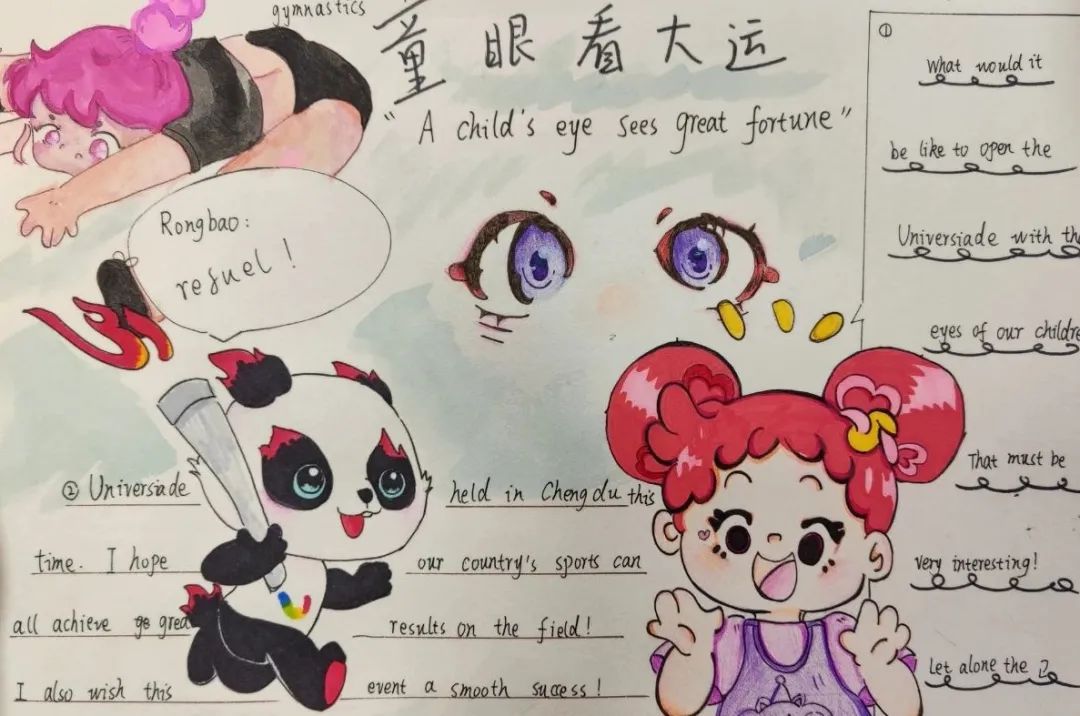 gymnastics
童眼看大运
"A child's eye sees great fortune"
Rongbao:
refuel!
①
What would it
be like to open the
Universiade with the
eyes of our childre
That must be
very interesting!
Let alone the
② Universiade held in Chengdu this
time. I hope our country's sports can
all achieve go great results on the field!
I also wish this event a smooth success!